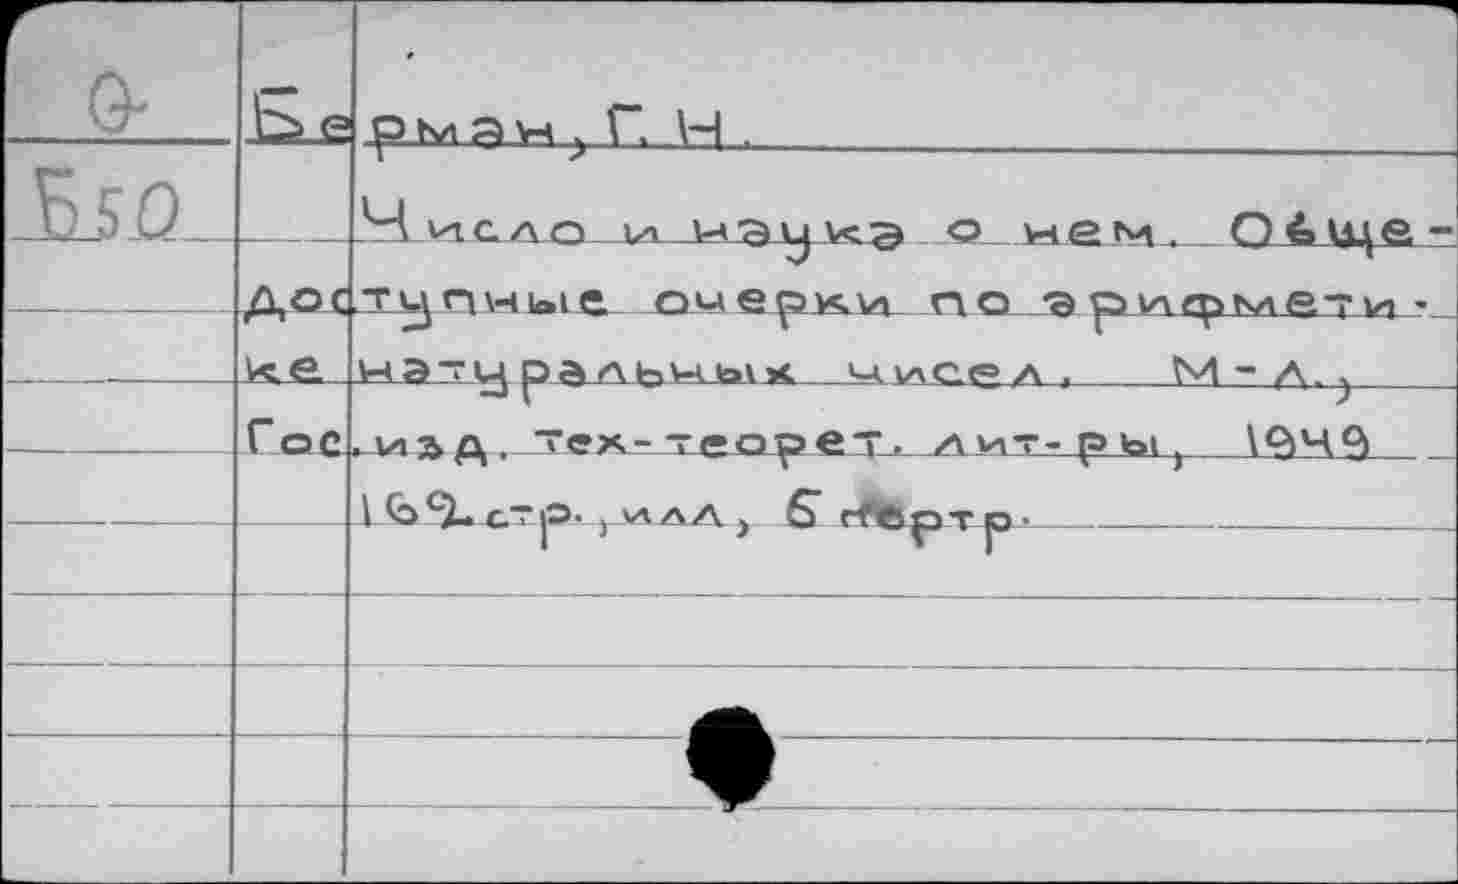 Берман, Г. Н.
Б50
Число и наука о нем. Обще-
доступные очерки по арифмети-
ке натуральных чисел. М-Л.,
Гос. изд. тех-теорет. лит-ры, 1949
стр., илл, 6 портр.